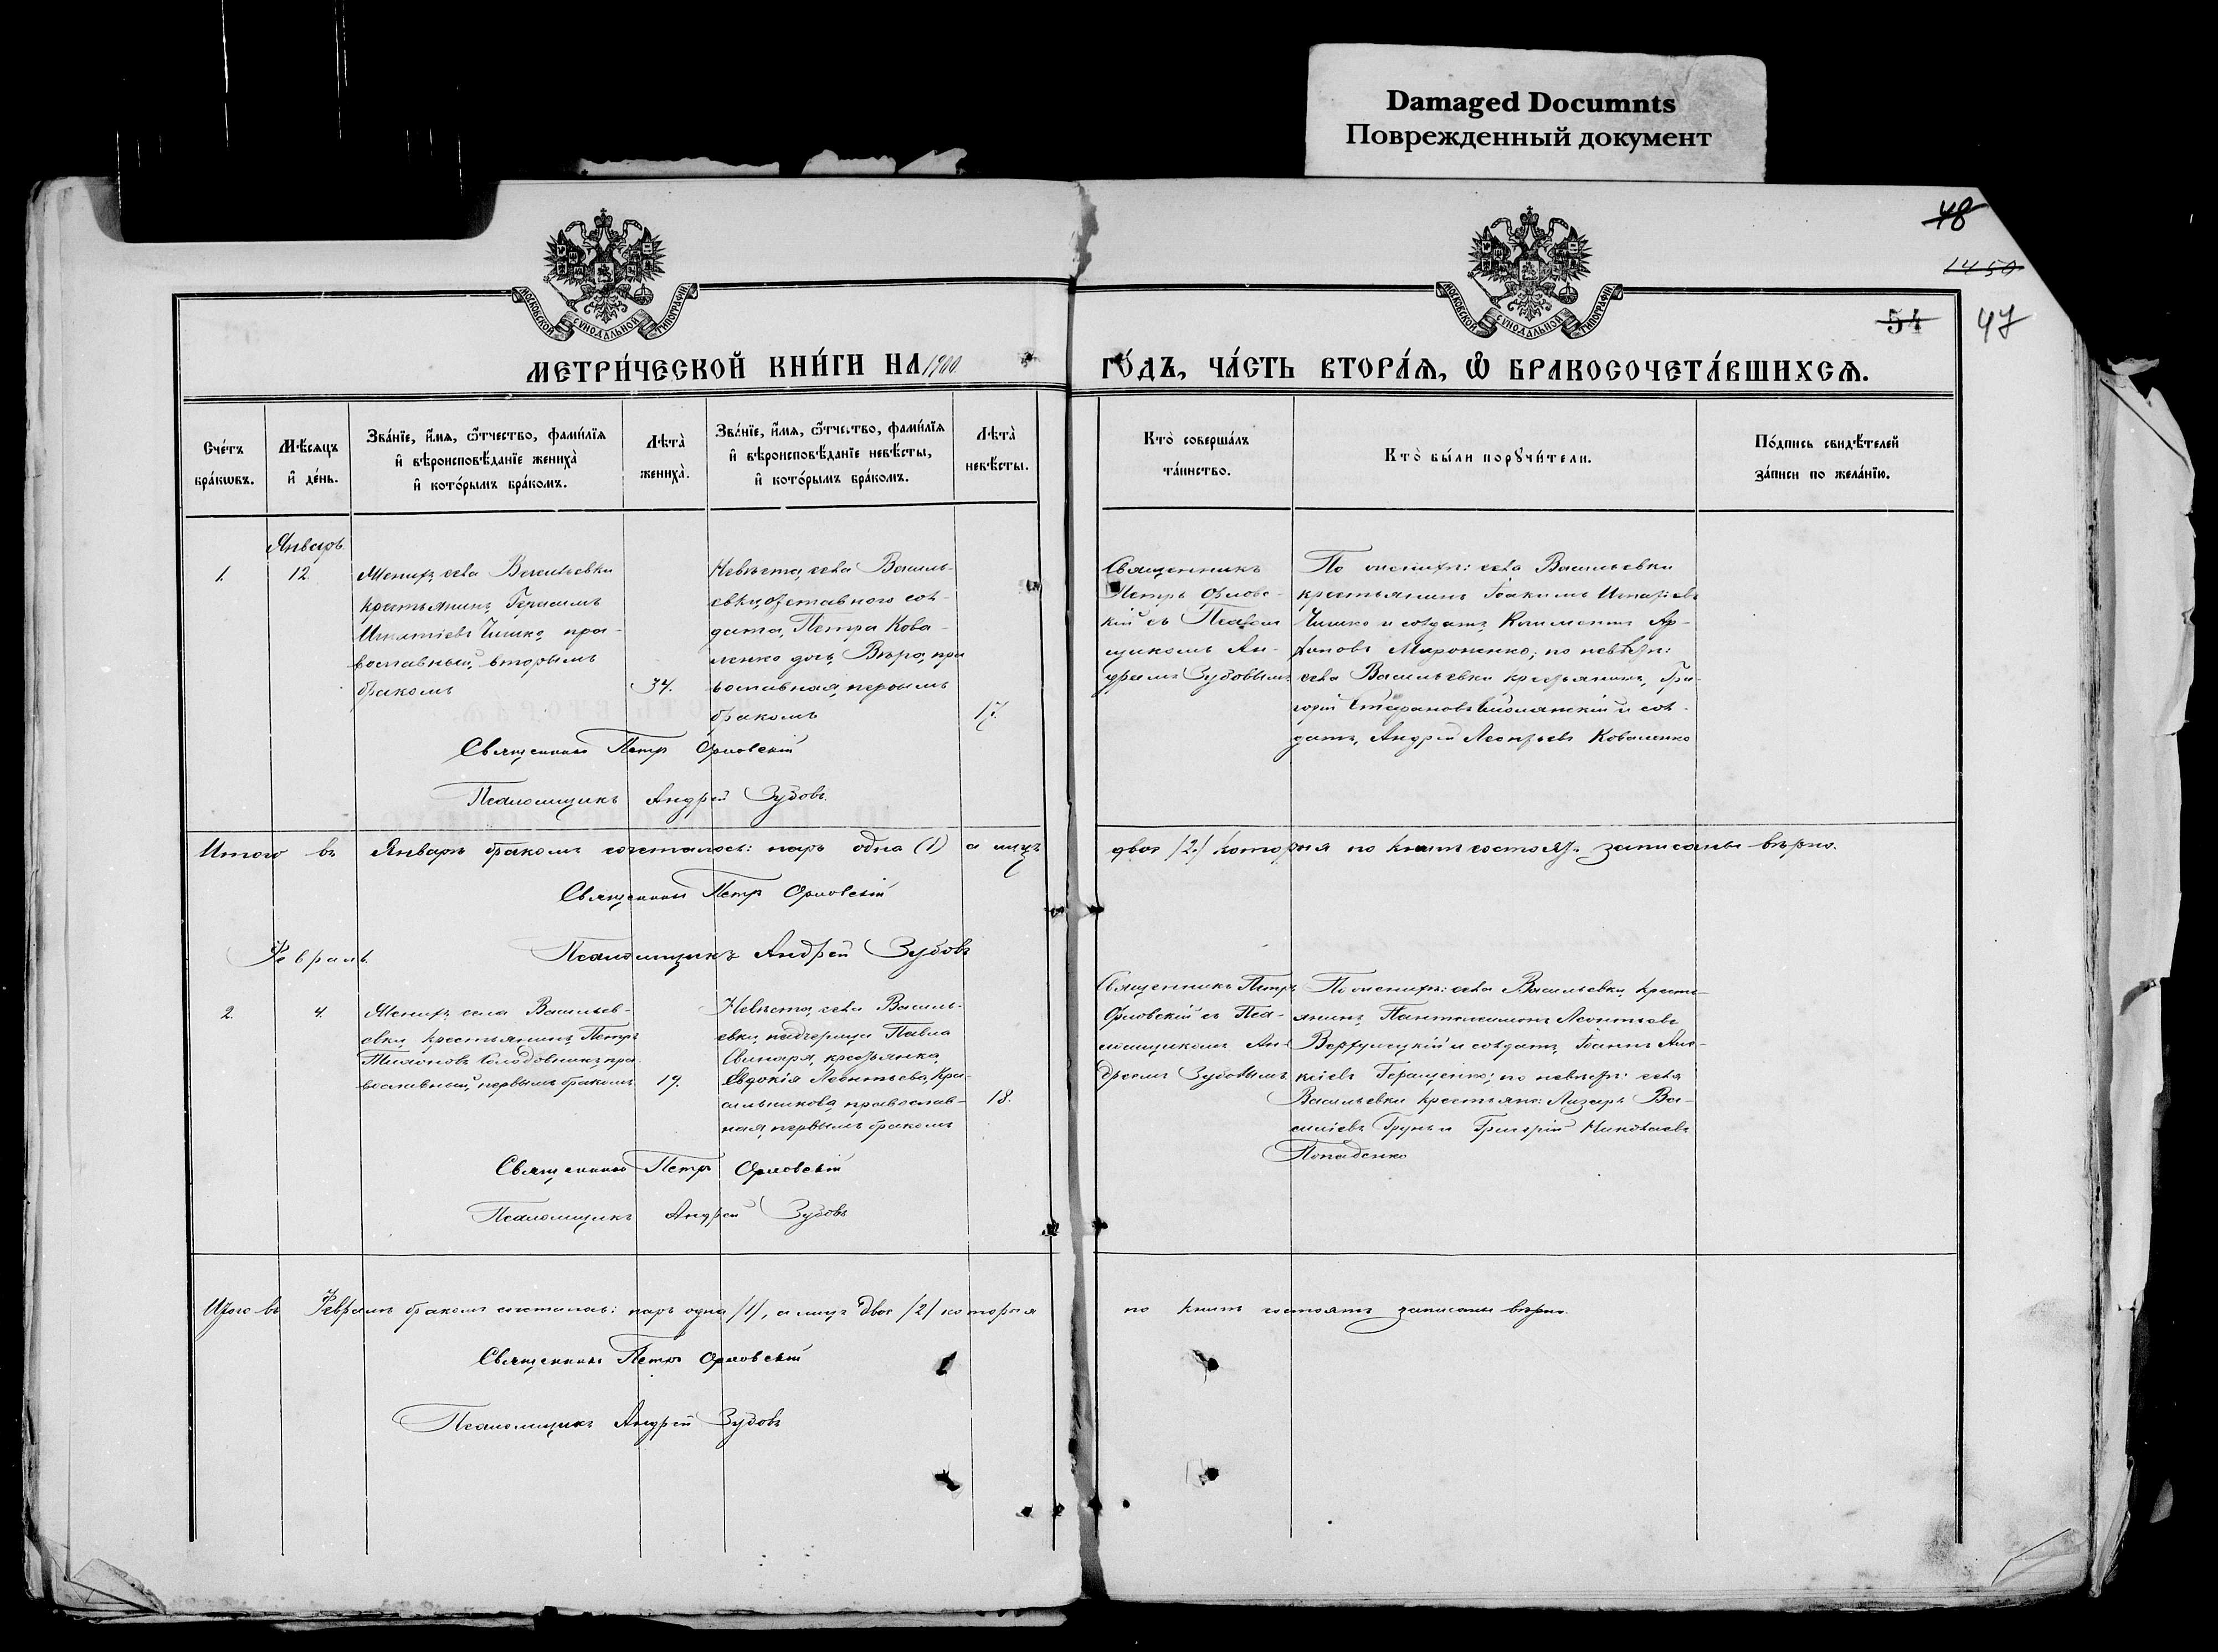 Damaged Documnts
Поврежденный документ
48
1450
54
47
МОСКОВСКОЙ СѴНОДАЛЬНОЙ ТИПОГРАФІИ
МОСКОВСКОЙ СѴНОДАЛЬНОЙ ТИПОГРАФІИ
МЕТРИ́ЧЕСКОЙ КНИ́ГИ НА 1900
ГО́ДЪ, ЧА́СТЬ ВТОРА́Ѧ, Ѡ҆ БРАКОСОЧЕТА́ВШИХСѦ.
Сче́тъ
бра́кѡвъ.
Мѣ́сѧцъ
и҆ де́нь.
Зва́нїе, и҆́мѧ, ѻ҆́тчество, фами́лїѧ
и҆ вѣроисповѣ́данїе жениха̀
и҆ кото́рымъ бра́комъ.
Лѣта̀
жениха̀.
Зва́нїе, и҆́мѧ, ѻ҆́тчество, фами́лїѧ
и҆ вѣроисповѣ́данїе невѣ́сты,
и҆ кото́рымъ бра́комъ.
Лѣта̀
невѣ́сты.
Кто̀ соверша́лъ
та́инство.
Кто̀ бы́ли порꙋчи́тели.
По́дпись свидѣ́телей
за́писи по жела́нїю.
Январь.
1.
12.
Женихъ, села Васильевки
крестьянинъ, Герасимъ
Игнатіевъ Чишко, пра-
вославный, вторымъ
бракомъ
34.
Невѣста, села Василь-
евки, отставного сол-
дата, Петра Кова-
ленко дочь, Вѣра, пра
вославная, первымъ
бракомъ
17.
Священникъ
Петръ Орлов-
кій съ Псалом
щикомъ Ан-
дреемъ Зубовымъ
По женихѣ: села Васильевки
крестьянинъ Іоакимъ Игнатіевъ
Чишко и солдатъ, Климентъ
Мироненко; по невѣстѣ:
села Васильевки крестьянинъ, Гри-
горій Стефановъ и сол-
датъ, Андрей Леонтьевъ Коваленко
Священникъ Петръ Орловскій
Псаломщикъ Андрей Зубовъ.
Итого въ Январѣ бракомъ сочеталось: паръ одна (1) а лицъ
двое (2) которыя по книгѣ состоятъ записаны вѣрно.
Священникъ Петръ Орловскій
Псаломщикъ Андрей Зубовъ
Февраль.
2.
4.
Женихъ, села Васильев-
евки, крестьянинъ, Петръ
пра-
вославный, первымъ бракомъ
19.
Невѣста, села Василь-
евки, падчерица Павла
крестьянка,
Евдокія Леонтьева, Кра-
сильникова, православ-
ная, первымъ бракомъ
18.
Священникъ Петръ
Орловскій съ Пса-
ломщикомъ Ан-
дреемъ Зубовымъ.
По женихѣ: села Васильевки, кресть-
янинъ, Пантелеимонъ Леонтьевъ
и солдатъ, Іоаннъ Але-
ксіевъ Геращенко; по невѣстѣ: села
Васильевки крестьяне: Лазарь Ва-
силіевъ и Григорій Николаевъ
Попаденко
Священникъ Петръ Орловскій
Псаломщикъ Андрей Зубовъ
Итого въ Февралѣ бракомъ сочеталось: паръ одна (1), а лицъ двое (2) которыя
по книгѣ состоятъ записаны вѣрно.
Священникъ Петръ Орловскій
Псаломщикъ Андрей Зубовъ